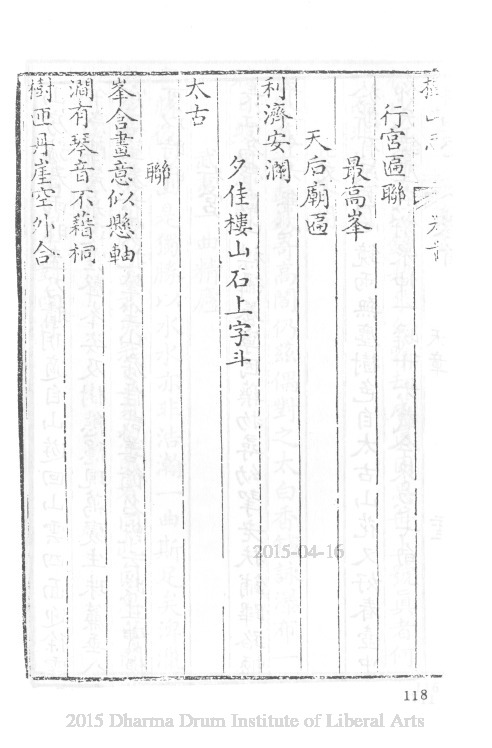 行宮匾聯
最高峯
天后廟匾
利濟安瀾
夕佳樓山石上字斗
太古
聯
峯含畫意似懸軸
澗有琴音不藉桐
樹亞丹崖空外合
2015-04-16
118
2015 Dharma Drum Institute of Liberal Arts